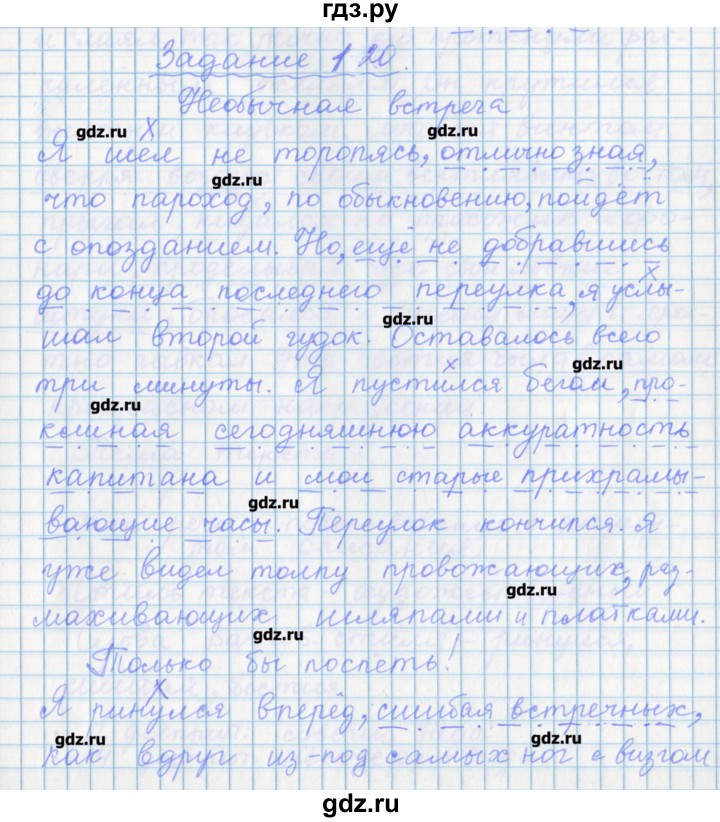 гдз.ру
Задание 120.
Необычная встреча
gdz.ru gdz.ru
Я шёл не торопясь, отлично зная,
gdz.ru
что пароход, по обыкновению, пойдёт
с опозданием. Но, ещё не добравшись
до конца последнего переулка, я услы-
gdz.ru
шал второй гудок. Оставалось всего
gdz.ru
три минуты. Я пустился бегом, про-
gdz.ru
клиная сегодняшнюю аккуратность
капитана и мои старые прихрамы-
gdz.ru
вающие часы. Переулок кончился. Я
уже видел толпу провожающих, раз-
gdz.ru
махивающих шляпами и платками.
gdz.ru
Только бы поспеть!
Я ринулся вперёд, сшибая встречных,
gdz.ru gdz.ru
как вдруг из-под самых ног с визгом
gdz.ru